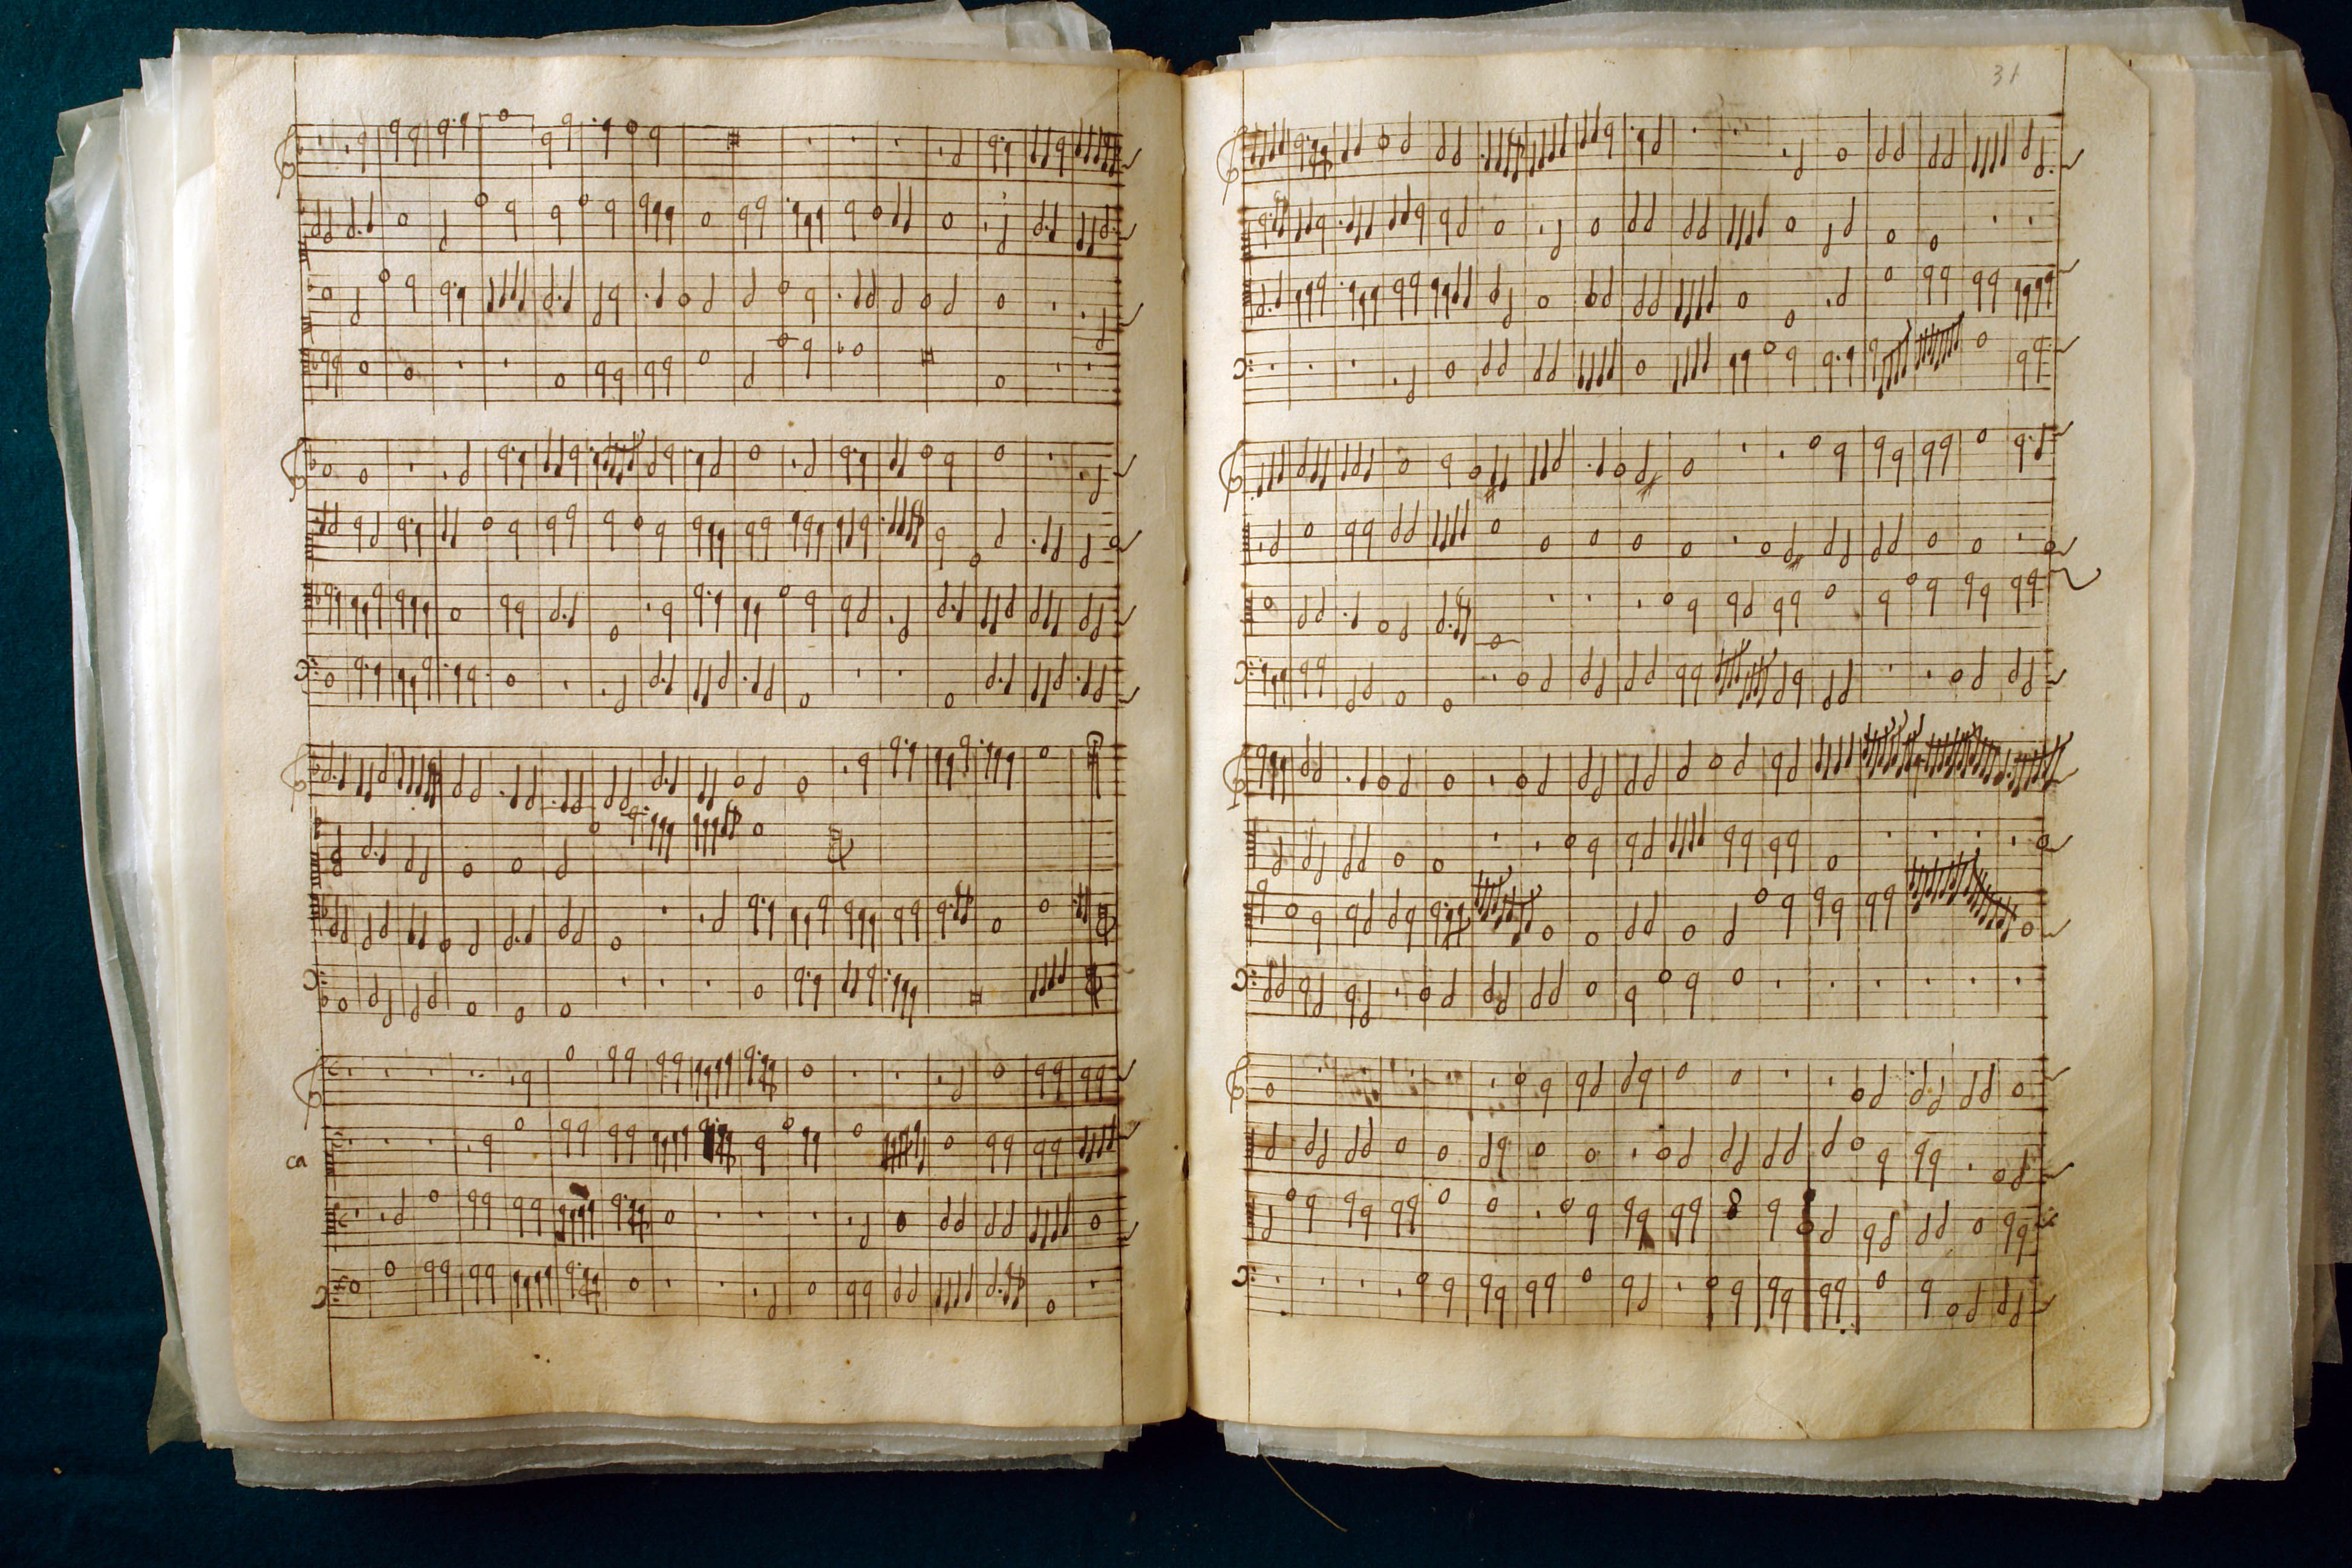 31
ca